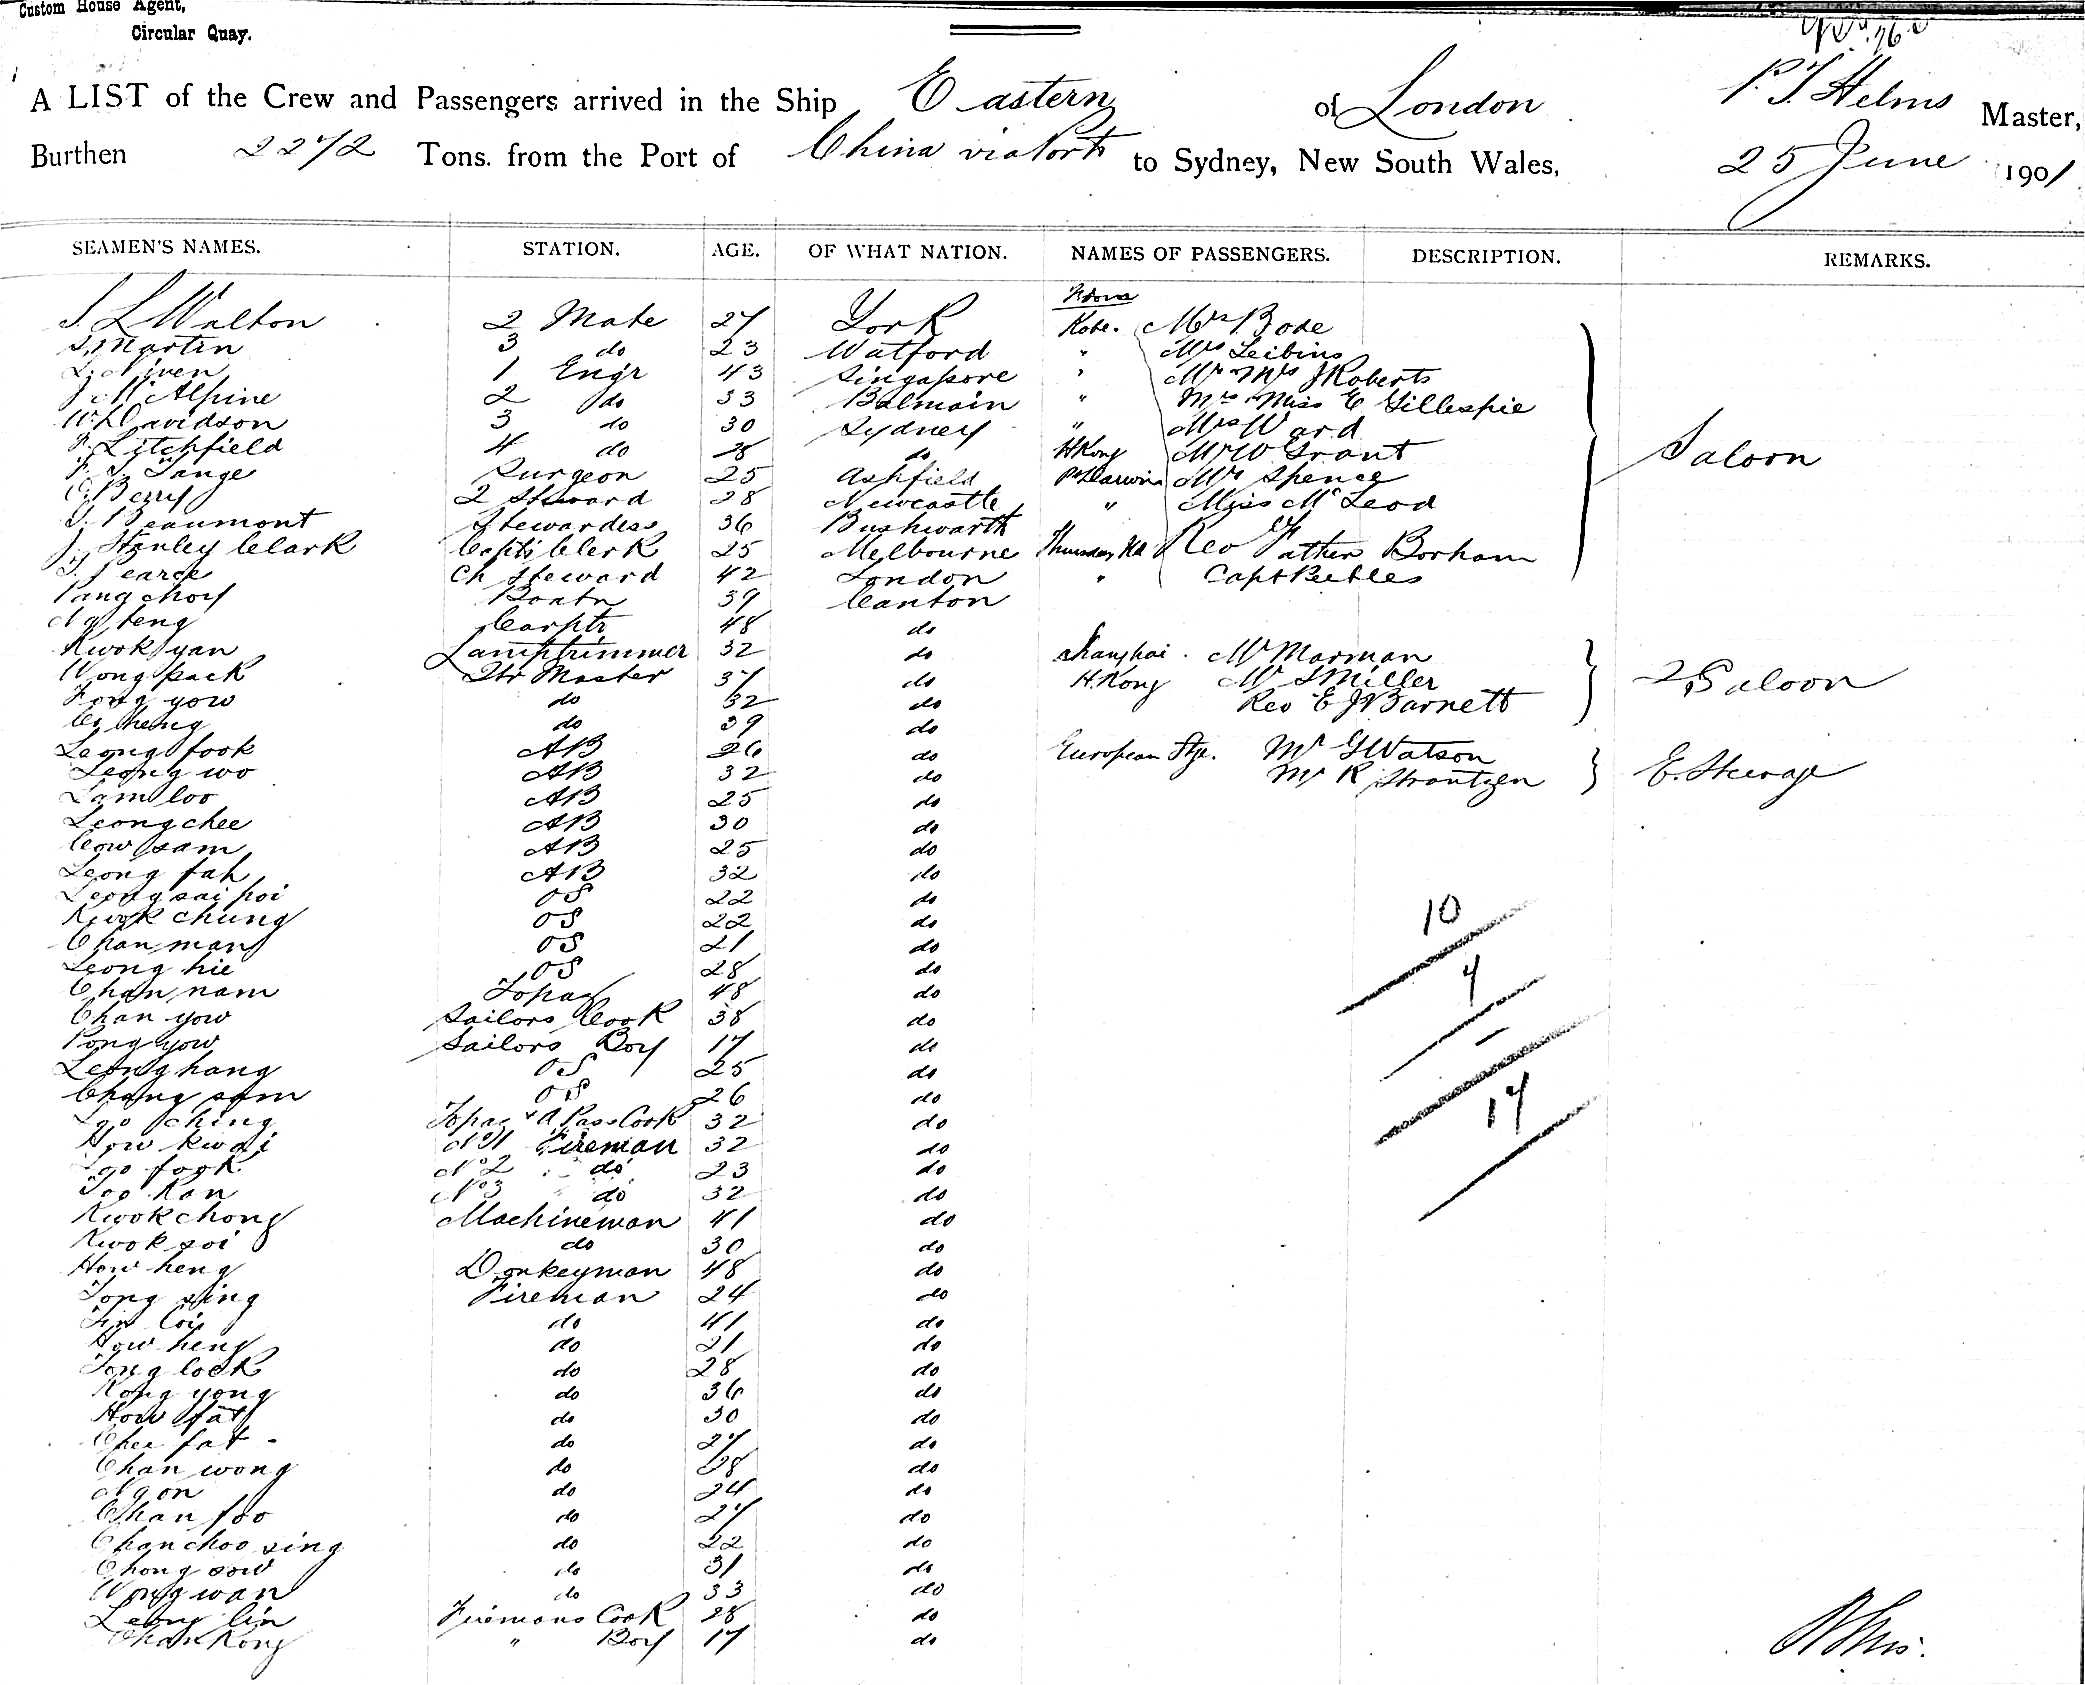 Custom House Agent,
Circular Quay.
A LIST of the Crew and Passengers arrived in the Ship Eastern of London P. T. Helms Master,
Burthen 2272 Tons. from the Port of China via Ports to Sydney, New South Wales, 25 June 1901
SEAMEN'S NAMES. STATION. AGE. OF WHAT NATION. NAMES OF PASSENGERS. DESCRIPTION. REMARKS.
From
S. L. Walton 2 Mate 27 York Kobe. Mrs Bode
Martin 3 do 23 Watford " Mrs Leibins
1 Engr 43 Singapore " Mr & Mrs J Roberts
J McAlpine 2 do 33 Balmain " Mrs & Miss E Gillespie
W. Davidson 3 do 30 Sydney " Mrs Ward
F. Litchfield 4 do 28 do H Kong Mr W Grant Saloon
F. T. Tange Surgeon 25 Ashfield Pt Darwin Mr Spence
C. Berry 2 Steward 28 Newcastle " Miss McLeod
S. Beaumont Stewardess 36 Bushwarth
J. Stanley Clark Capts Clerk 25 Melbourne Thursday Isd Rev Father Borham
T. Pearce Ch Steward 42 London " Capt Peebles
Pang choy Boatn 39 Canton
Ng teng Carptr 48 do
Kwok yan Lamptrimmer 32 do Shanghai. Mr Marman
Wong pack Qtr Master 37 do H. Kong Mr S Miller 2 Saloon
Fong yow do 32 do Rev E J Barnett
heng do 39 do
Leong fook AB 26 do European Stge. Mr G Watson
Leong wo AB 32 do Mr R Strantzen E. Steerage
Lam loo AB 25 do
Leong chee AB 30 do
Cow sam AB 25 do
Leong fah AB 32 do
Leong sai poi OS 22 do
Kwok chung OS 22 do
Chan man OS 21 do
Leong hie OS 28 do
Chan nam Topas 48 do
Chan yow Sailors Cook 38 do
Pong yow Sailors Boy 17 do
Leong hang OS 25 do
Chong sam OS 26 do
ching Topas & A Pass Cook 32 do
How kwai No 1 Fireman 32 do
fook No 2 do 23 do
Too Kan No 3 do 32 do
Kwok chong Machineman 41 do
Kwok soi do 30 do
How heng Donkeyman 48 do
Tong sing Fireman 24 do
do 41 do
How heng do 21 do
Tong lock do 28 do
Kong yong do 36 do
How fat do 30 do
Chee fat do 27 do
Chan wong do 28 do
Ngon do 24 do
Chan foo do 27 do
Chan choo sing do 22 do
Chong sow do 31 do
Wong wan do 33 do
Leong lin Firemans Cook 28 do
Chan Kong " Boy 17 do
10
7
17